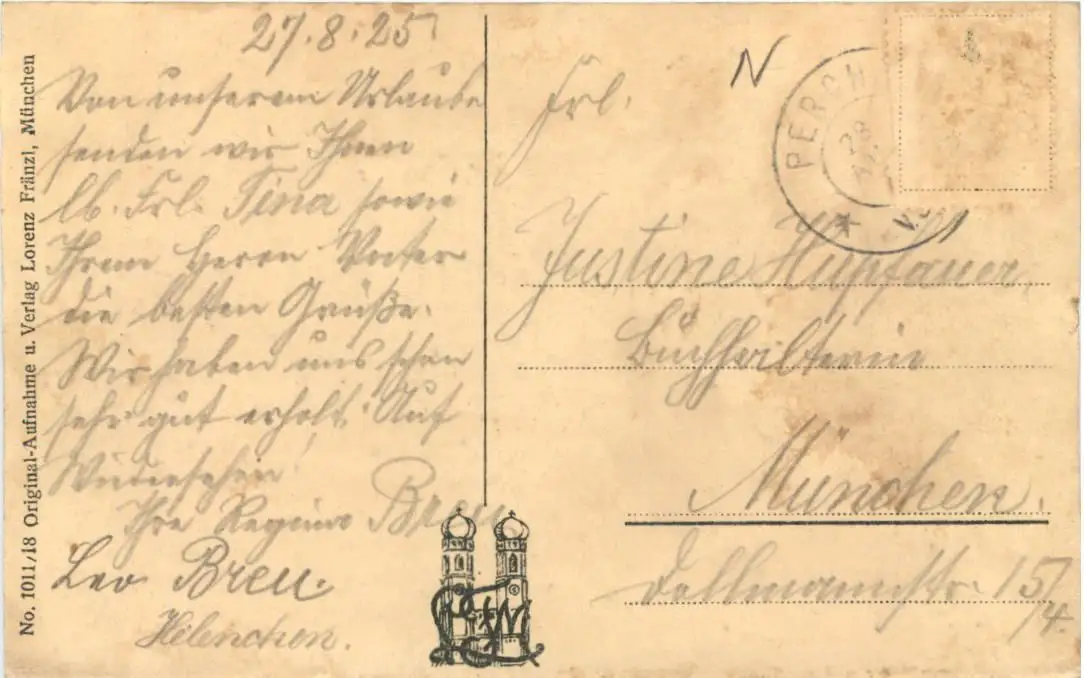 27.8.25
Von unserem Urlaube
senden wir Ihnen
lb. Frl. Tina sowie
Ihrem Herrn Vater
die besten Grüße.
Wir haben uns schon
sehr gut erholt. Auf
Wiedersehen!
Ihre Regina Breu
Leo Breu.
Helenchen.
No. 1011/18 Original-Aufnahme u. Verlag Lorenz Fränzl, München
N
PERCH
29
Frl.
Justine Hupfauer
Buchhalterin
München.
Dollmannstr. 15/
/4.